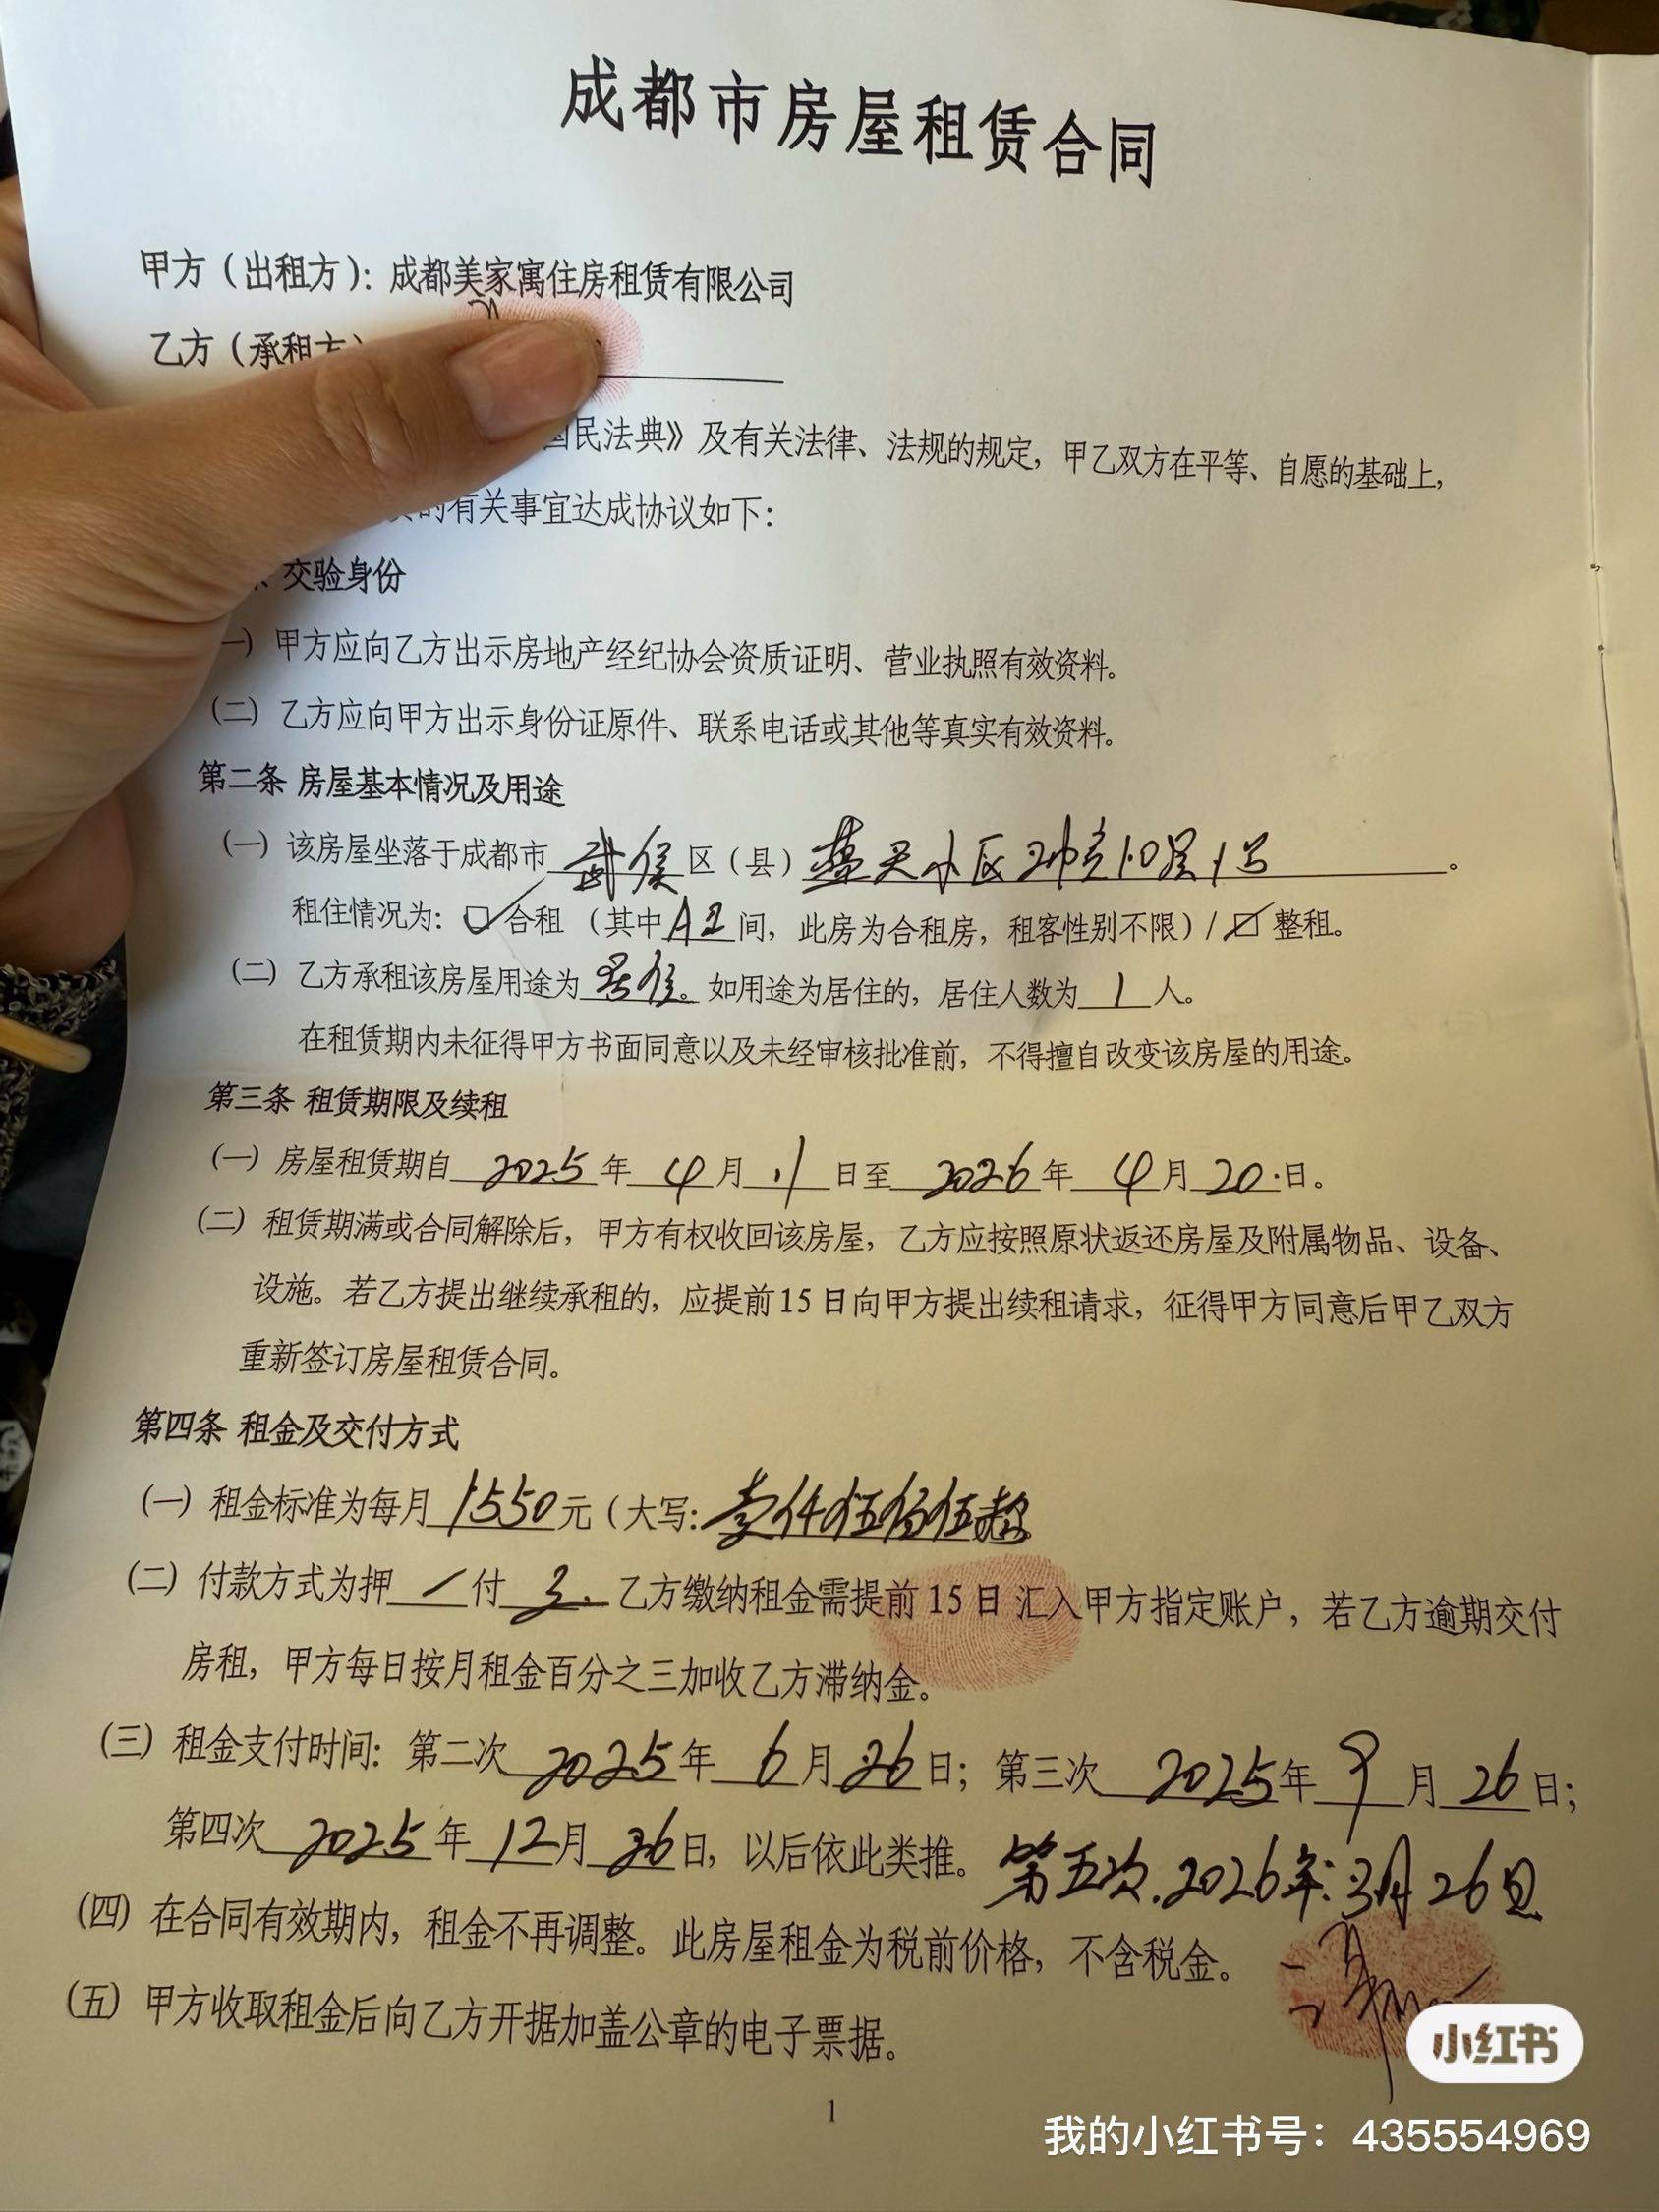 成都市房屋租赁合同
甲方（出租方）：成都美家寓住房租赁有限公司
乙方（承租方）
国民法典》及有关法律、法规的规定，甲乙双方在平等、自愿的基础上，
的有关事宜达成协议如下：
、交验身份
一）甲方应向乙方出示房地产经纪协会资质证明、营业执照有效资料。
（二）乙方应向甲方出示身份证原件、联系电话或其他等真实有效资料。
第二条 房屋基本情况及用途
（一）该房屋坐落于成都市 武侯 区（县） 小区 10层1号 。
租住情况为：☑ 合租（其中 A2 间，此房为合租房，租客性别不限）/ ☑ 整租。
（二）乙方承租该房屋用途为 居住。如用途为居住的，居住人数为 1 人。
在租赁期内未征得甲方书面同意以及未经审核批准前，不得擅自改变该房屋的用途。
第三条 租赁期限及续租
（一）房屋租赁期自 2025 年 4 月 日至 2026 年 4 月 20 日。
（二）租赁期满或合同解除后，甲方有权收回该房屋，乙方应按照原状返还房屋及附属物品、设备、
设施。若乙方提出继续承租的，应提前15日向甲方提出续租请求，征得甲方同意后甲乙双方
重新签订房屋租赁合同。
第四条 租金及交付方式
（一）租金标准为每月 1550 元（大写：壹仟伍佰伍拾
（二）付款方式为押 一 付 3. 乙方缴纳租金需提前15日 汇入甲方指定账户，若乙方逾期交付
房租，甲方每日按月租金百分之三加收乙方滞纳金。
（三）租金支付时间：第二次 2025 年 6 月 26 日；第三次 2025 年 9 月 26 日；
第四次 2025 年 12 月 26 日，以后依此类推。第五次.2026年3月26日
（四）在合同有效期内，租金不再调整。此房屋租金为税前价格，不含税金。
（五）甲方收取租金后向乙方开据加盖公章的电子票据。
小红书
1
我的小红书号：435554969